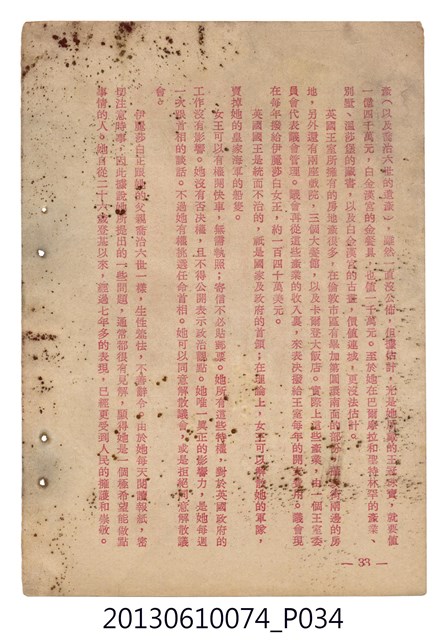 產（以及喬治六世的遺產），雖然一直沒公佈，但據估計，光是她所擁的王冠珠寶，就要值
一億四千萬元，白金漢宮的金餐具，也值一千萬元。至於她在巴爾摩拉和聖特林罕的產業、
別墅、溫莎堡的藏書，以及白金漢宮的古董，價值連城，更沒法估計。
英國王室所擁有的房地產很多，在倫敦市區有畢加第圓環南面的部份，攝政街兩邊的房
地，另外還有兩座戲院，三個大餐館，以及卡爾登大飯店。實際上這些產業，由一個王室委
員會代表議會管理。議會再從這些產業的收入裏，來表決撥給王室每年的開支費用。議會現
在每年撥給伊麗莎白女王，約一百四十萬美元。
英國國王是統而不治的，祇是國家及政府的首領；在理論上，女王可以解散她的軍隊，
賣掉她的皇家海軍的船隻。
女王可以有權開快車，無需執照；寄信不必貼郵票。她所有這些特權，對於英國政府的
工作沒有影響。她沒有否決權，且不得公開表示政治觀點。她唯一真正的影響力，是她每週
一次跟首相的談話。不過她有權挑選任命首相。她可以同意解散議會，或是拒絕同意解散議
會。
伊麗莎白正跟她的父親喬治六世一樣，生性緊住，不善辭令。由於她每天閱讀報紙，密
切注意時事，因此據說她所提出的一些問題，通常都很有見解，顯得她是一個極希望能做點
事情的人。她自從二十六歲登基以來，經過七年多的表現，已經更受到人民的擁護和崇敬。
— 33 —
20130610074_P034